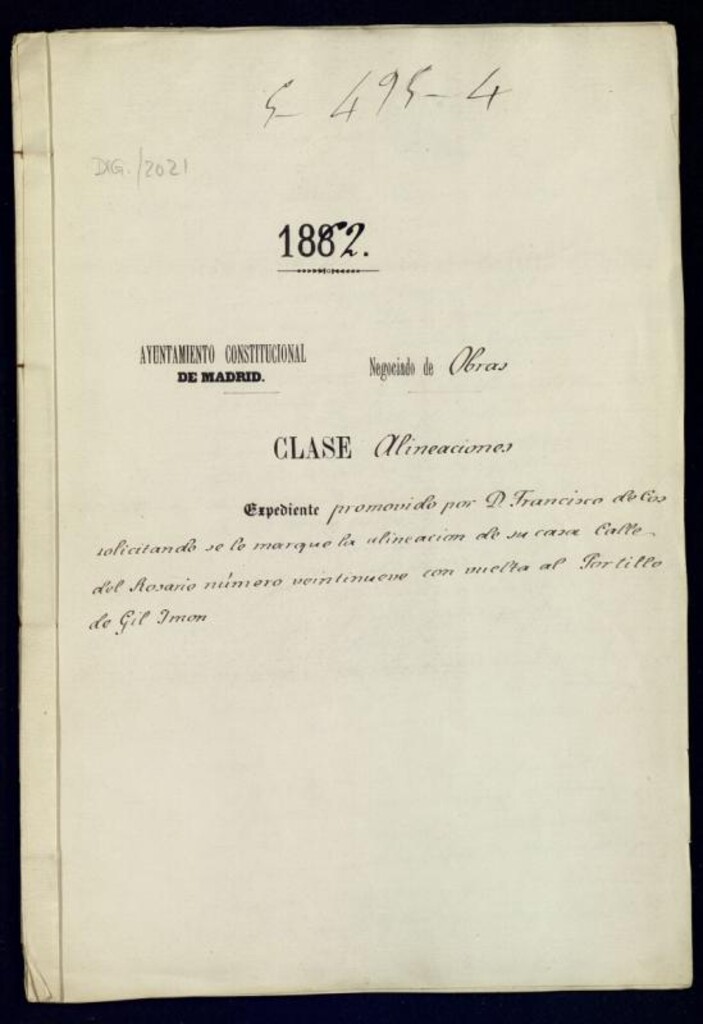 5-495-4
DIG./2021
1882.
AYUNTAMIENTO CONSTITUCIONAL
DE MADRID.
Negociado de Obras
CLASE Alineaciones
Expediente promovido por D. Francisco de Cos
solicitando se le marque la alineacion de su casa Calle
del Rosario número veintinueve con vuelta al Portillo
de Gil Imon